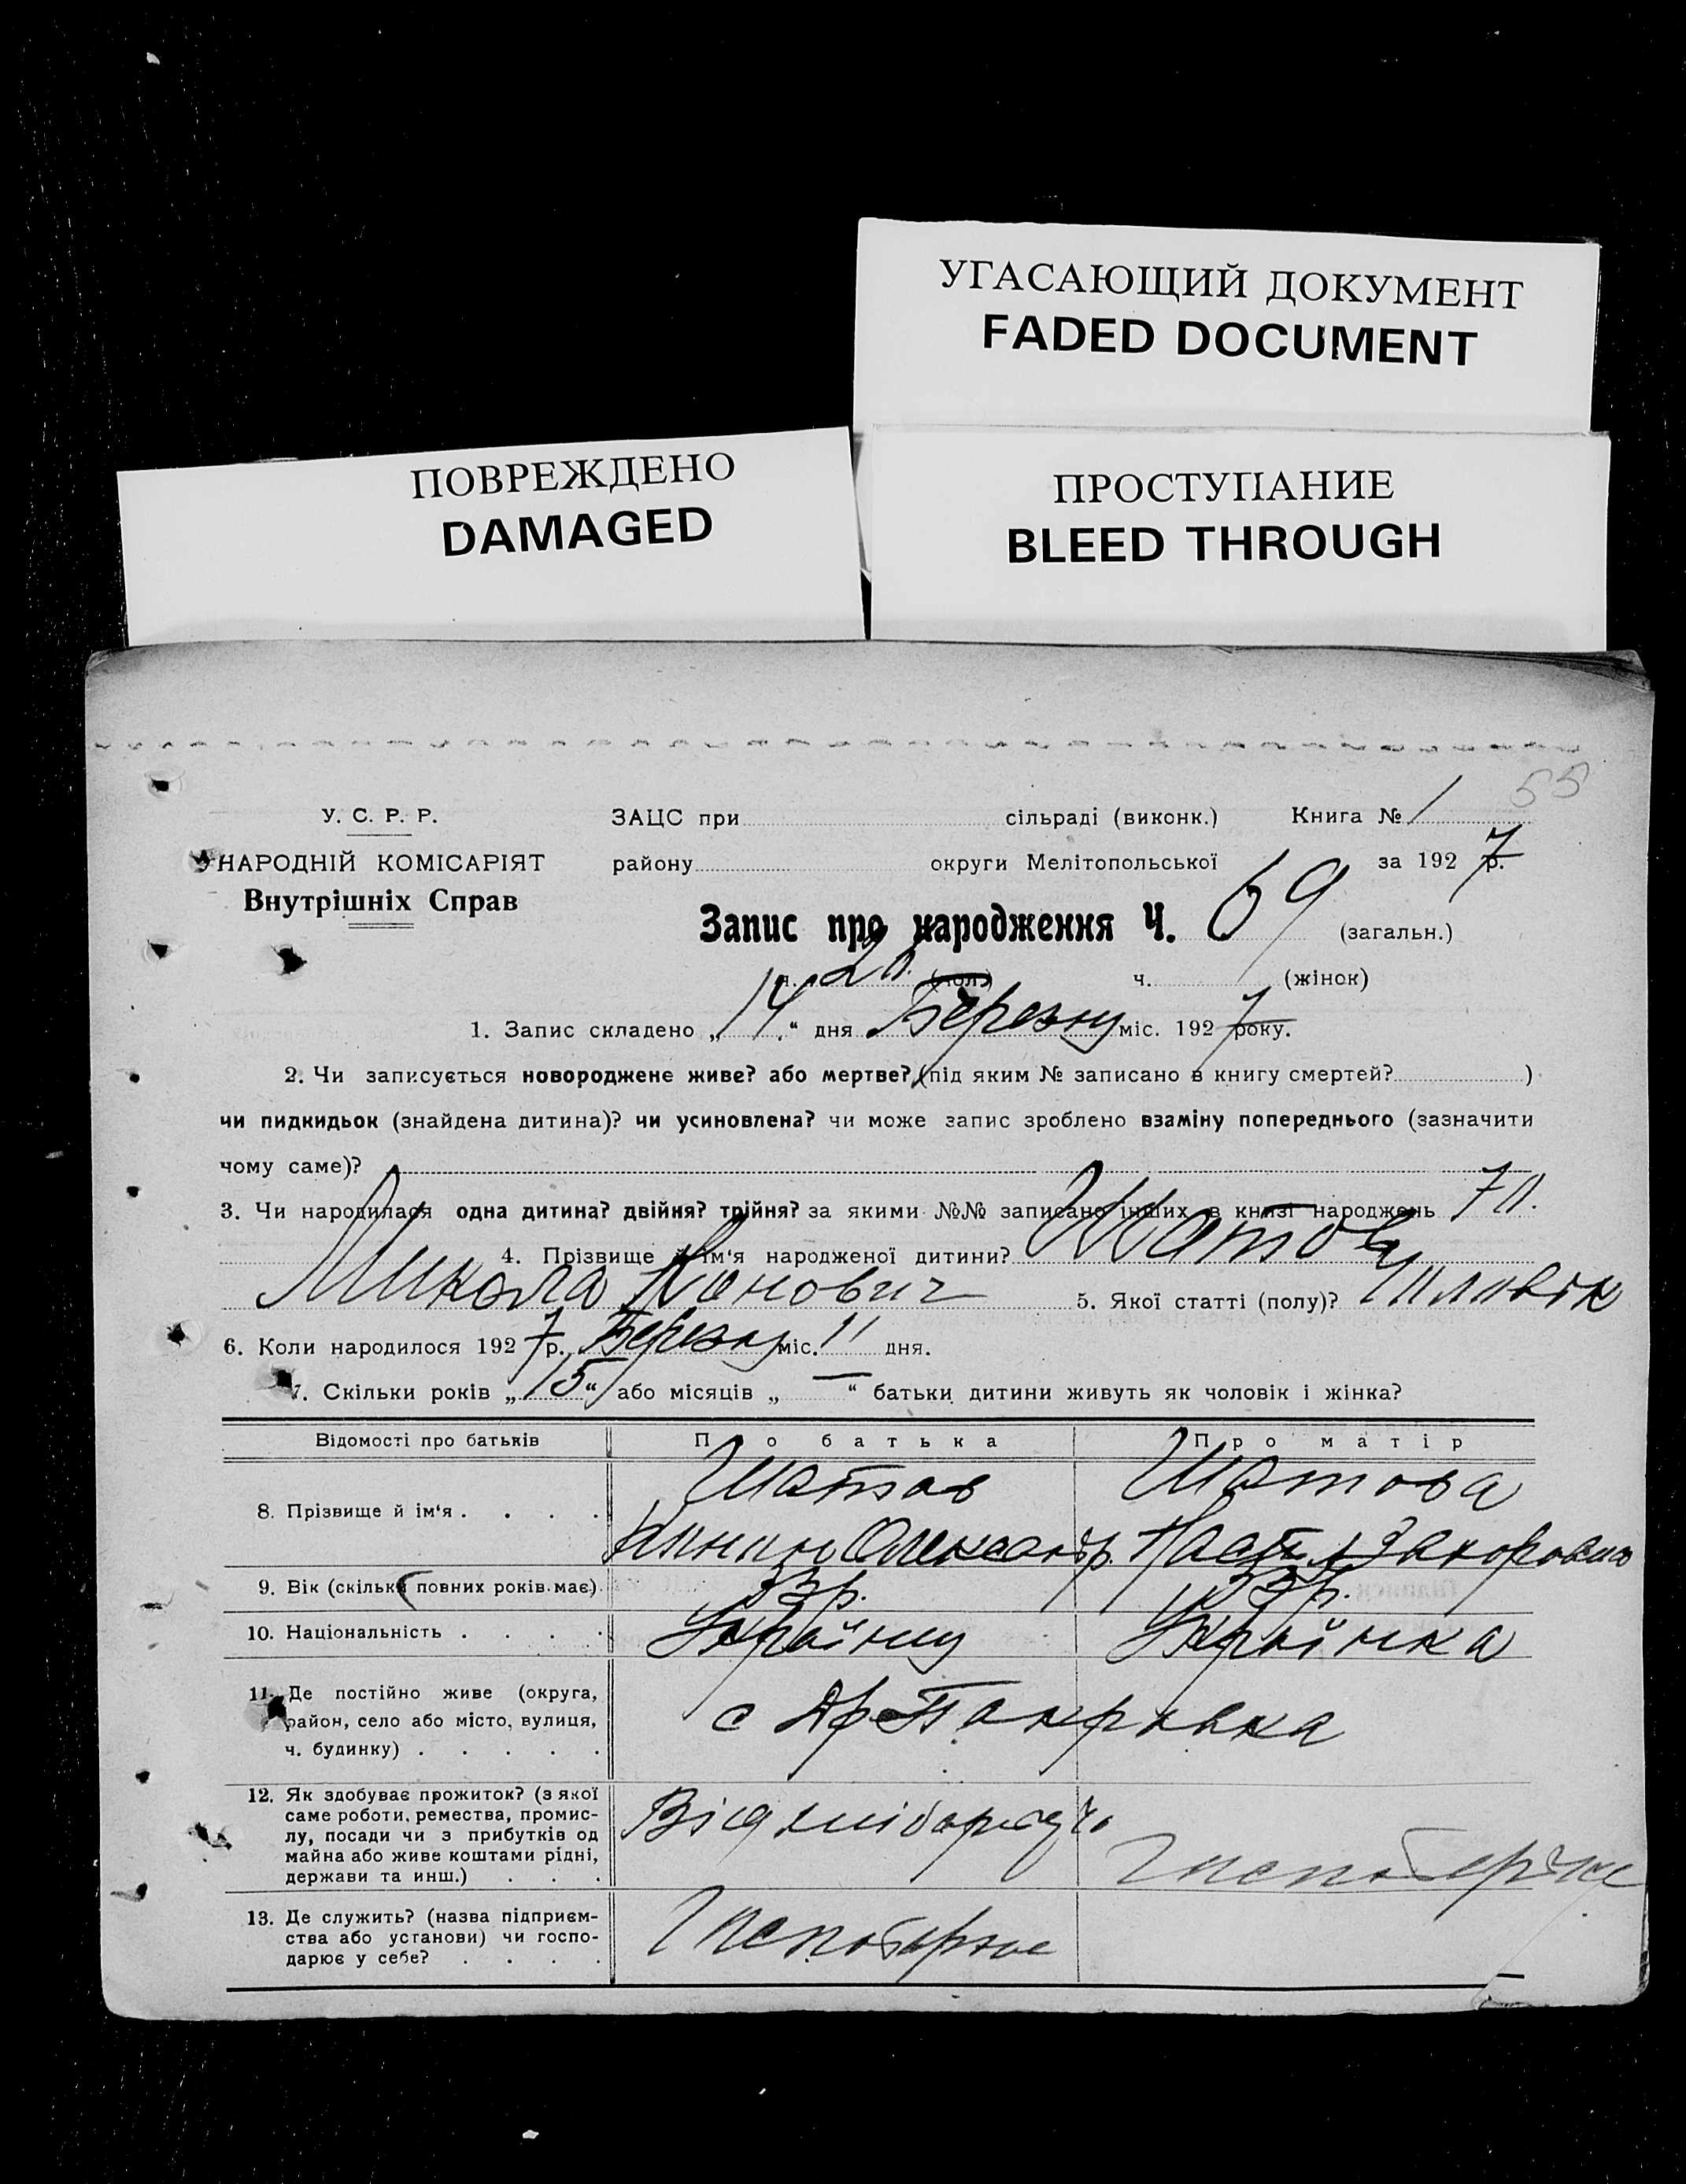 УГАСАЮЩИЙ ДОКУМЕНТ
FADED DOCUMENT
ПОВРЕЖДЕНО
DAMAGED
ПРОСТУПАНИЕ
BLEED THROUGH
55
У. С. Р. Р. ЗАЦС при сільраді (виконк.) Книга № 1
НАРОДНІЙ КОМІСАРІЯТ району округи Мелітопольської за 1927 р.
Внутрішніх Справ
Запис про народження Ч. 69 (загальн.)
ч. (чол.) ч. (жінок)
1. Запис складено „14“ дня Березню міс. 1927 року.
2. Чи записується новороджене живе? або мертве? (під яким № записано в книгу смертей? )
чи пидкидьок (знайдена дитина)? чи усиновлена? чи може запис зроблено взаміну попереднього (зазначити
чому саме)?
3. Чи народилася одна дитина? двійня? трійня? за якими №№ записано інших в книзі народжень
4. Прізвище й ім‘я народженої дитини? Шатов
Микола 5. Якої статті (полу)?
6. Коли народилося 1927 р. Березню міс. 11 дня.
7. Скільки років „15“ або місяців „—“ батьки дитини живуть як чоловік і жінка?
Відомості про батьків Про батька Про матір
8. Прізвище й ім‘я . . . . Шатов Шатова
Олександр.
9. Вік (скільки повних років має) 33р. 33р.
10. Національність . . . . Українц Українка
11. Де постійно живе (округа,
район, село або місто, вулиця,
ч. будинку) . . . . .
с
12. Як здобуває прожиток? (з якої
саме роботи, ремества, промис-
лу, посади чи з прибутків од
майна або живе коштами рідні,
держави та инш.) . . .
Від хліборобу
13. Де служить? (назва підприєм-
ства або установи) чи госпо-
дарює у себе? . . . .